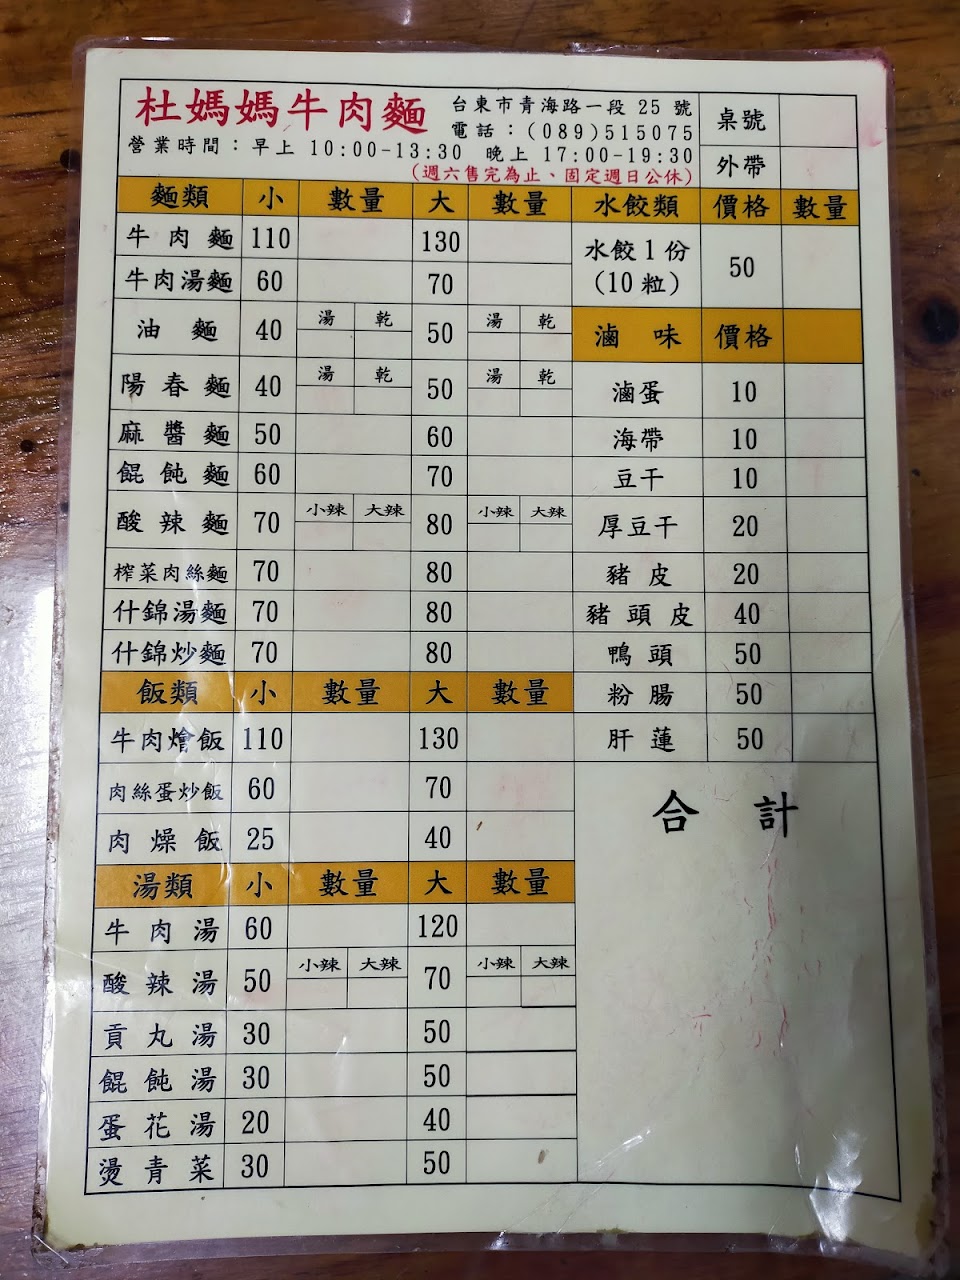 杜媽媽牛肉麵
台東市青海路一段 25 號
電話：(089)515075
營業時間：早上 10:00-13:30 晚上 17:00-19:30
(週六售完為止、固定週日公休)
桌號
外帶
麵類 小 數量 大 數量
牛肉麵 110 130
牛肉湯麵 60 70
油麵 40 湯 乾 50 湯 乾
陽春麵 40 湯 乾 50 湯 乾
麻醬麵 50 60
餛飩麵 60 70
酸辣麵 70 小辣 大辣 80 小辣 大辣
榨菜肉絲麵 70 80
什錦湯麵 70 80
什錦炒麵 70 80
飯類 小 數量 大 數量
牛肉燴飯 110 130
肉絲蛋炒飯 60 70
肉燥飯 25 40
湯類 小 數量 大 數量
牛肉湯 60 120
酸辣湯 50 小辣 大辣 70 小辣 大辣
貢丸湯 30 50
餛飩湯 30 50
蛋花湯 20 40
燙青菜 30 50
水餃類 價格 數量
水餃1份
(10粒) 50
滷味 價格
滷蛋 10
海帶 10
豆干 10
厚豆干 20
豬皮 20
豬頭皮 40
鴨頭 50
粉腸 50
肝蓮 50
合計